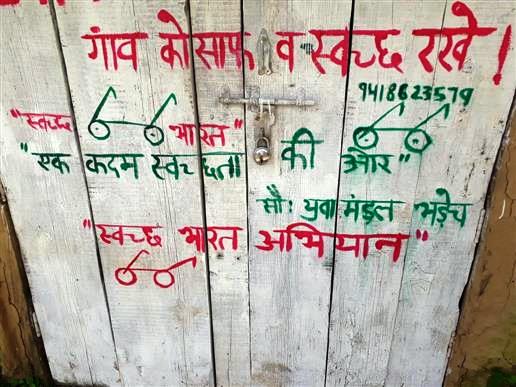 गांव को साफ व स्वच्छ रखे!
9418623579
"स्वच्छ भारत"
"एक कदम स्वच्छता की ओर"
सौ: युवा मंडल भड़ेच
"स्वच्छ भारत अभियान"